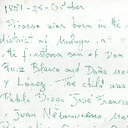 1881 - 25 - October
Picasso was born in the
district of Malaga, a
the firstborn son of Don
Ruiz Blasco and Doña
y Lopez. The child was
Pablo Diego José Francisco
Juan Nepomuceno